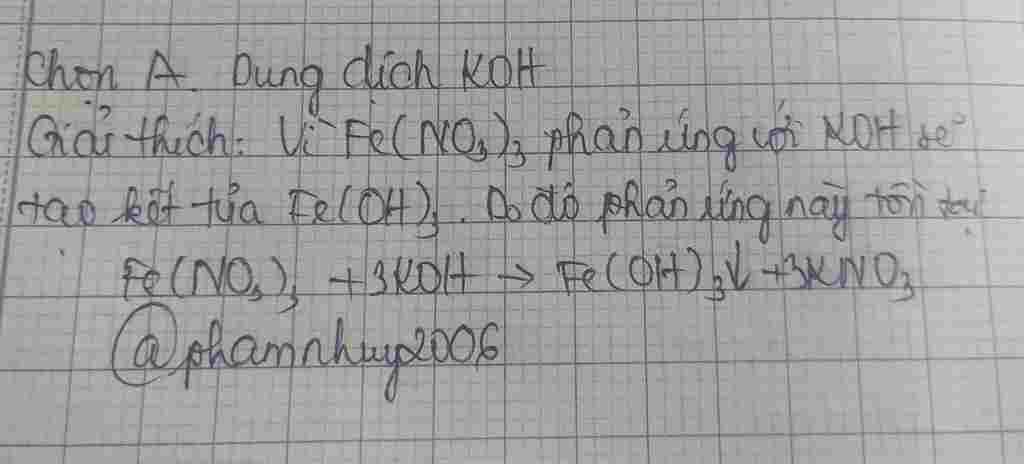 Chọn A. Dung dịch KOH
Giải thích: Vì Fe(NO3)3 phản ứng với KOH sẽ
tạo kết tủa Fe(OH)3. Do đó phản ứng này tồn tại
Fe(NO3)3 + 3KOH → Fe(OH)3↓ + 3KNO3
@phamnhuy2006